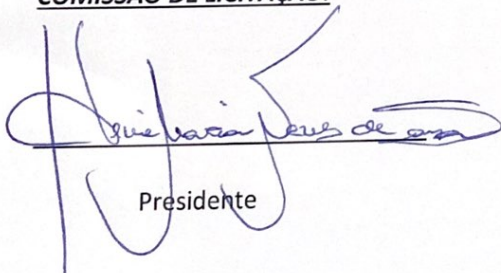 COMISSÃO DE LICITAÇÃO:
Maria de
Presidente